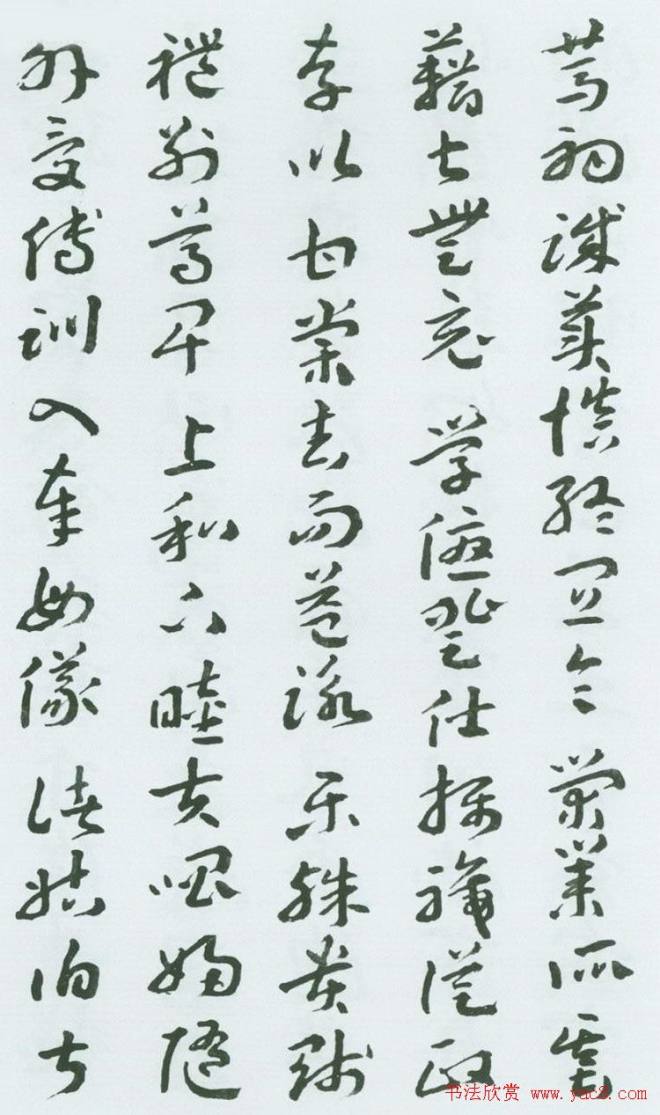 篤初誠美慎終宜令榮業所基
籍甚無竟學優登仕攝職從政
存以甘棠去而益詠樂殊貴賤
禮別尊卑上和下睦夫唱婦隨
外受傅訓入奉母儀諸姑伯叔
书法欣赏 www.yac8.com